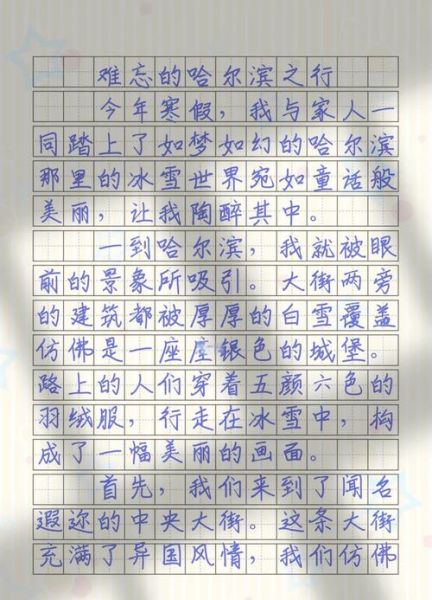 难忘的哈尔滨之行
今年寒假，我与家人一
同踏上了如梦如幻的哈尔滨
那里的冰雪世界宛如童话般
美丽，让我陶醉其中。
一到哈尔滨，我就被眼
前的景象所吸引。大街两旁
的建筑都被厚厚的白雪覆盖
仿佛是一座座银色的城堡。
路上的人们穿着五颜六色的
羽绒服，行走在冰雪中，构
成了一幅美丽的画面。
首先，我们来到了闻名
遐迩的中央大街。这条大街
充满了异国风情，我们仿佛